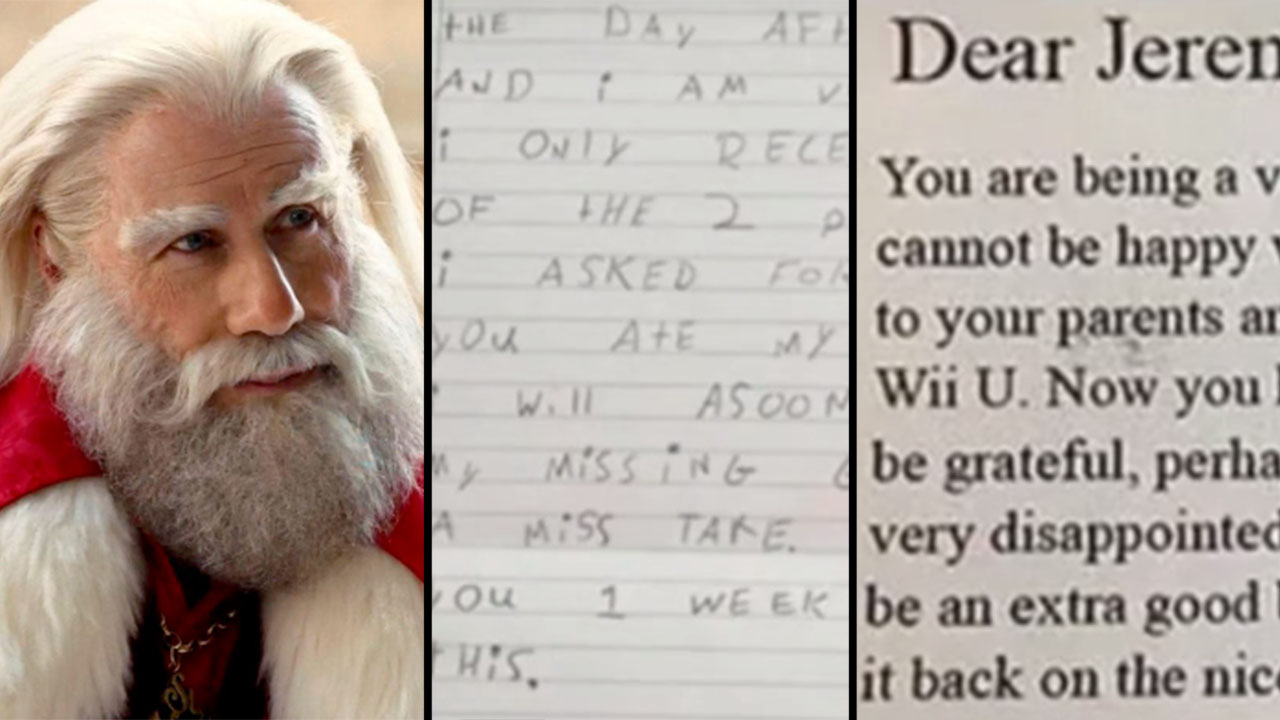 THE DAY AF
AND i AM
i ONLY RECE
OF tHE 2 P
i ASKED FOR
yOu AtE MY
i Will ASOON
My MiSSiNG
A MiSS TAKE.
yOu 1 WEEK
tHiS.
Dear Jerem
You are being a v
cannot be happy
to your parents an
Wii U. Now you
be grateful, perha
very disappointed
be an extra good
it back on the nice